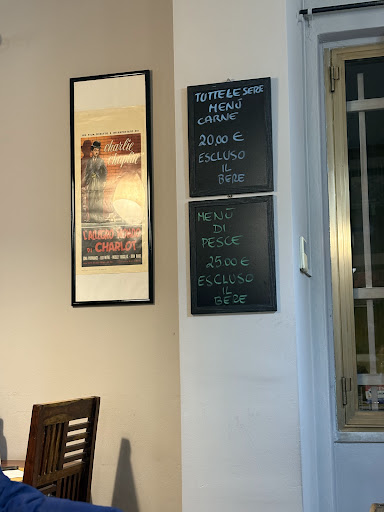 charlie
chaplin
DI CHARLOT
TUTTE LE SERE
MENÚ
CARNE
20,00 €
ESCLUSO
IL
BERE
MENÚ
DI
PESCE
25,00 €
ESCLUSO
IL
BERE